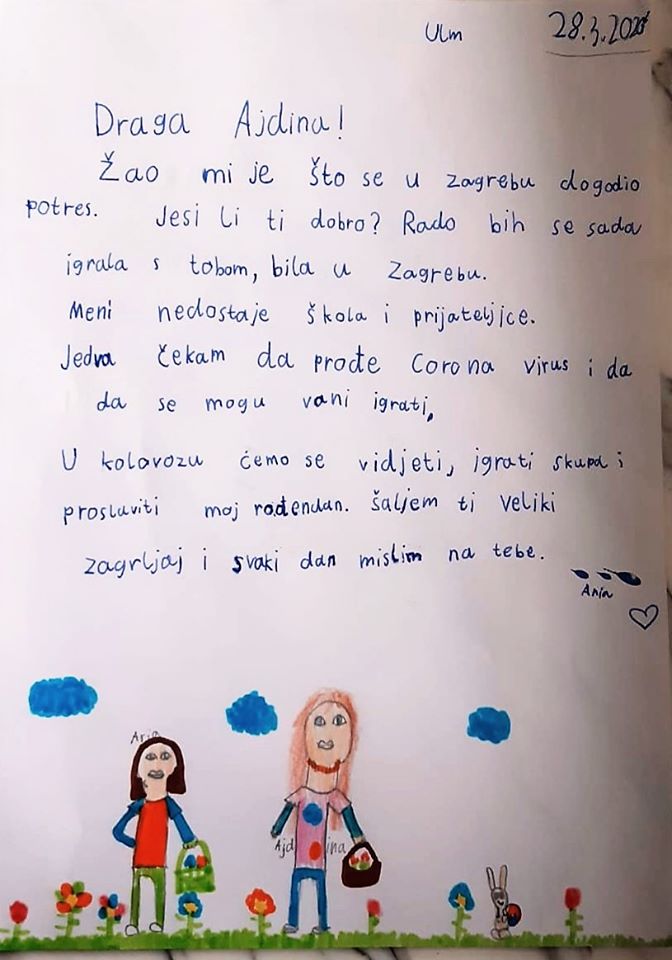 Ulm 28.3.2020
Draga Ajdina!
Žao mi je što se u Zagrebu dogodio
potres. Jesi li ti dobro? Rado bih se sada
igrala s tobom, bila u Zagrebu.
Meni nedostaje škola i prijateljice.
Jedva čekam da prođe Corona virus i da
da se mogu vani igrati,
U kolovozu ćemo se vidjeti, igrati skupa i
proslaviti moj rođendan. šaljem ti veliki
zagrljaj i svaki dan mislim na tebe.
Anja
Ajd ina